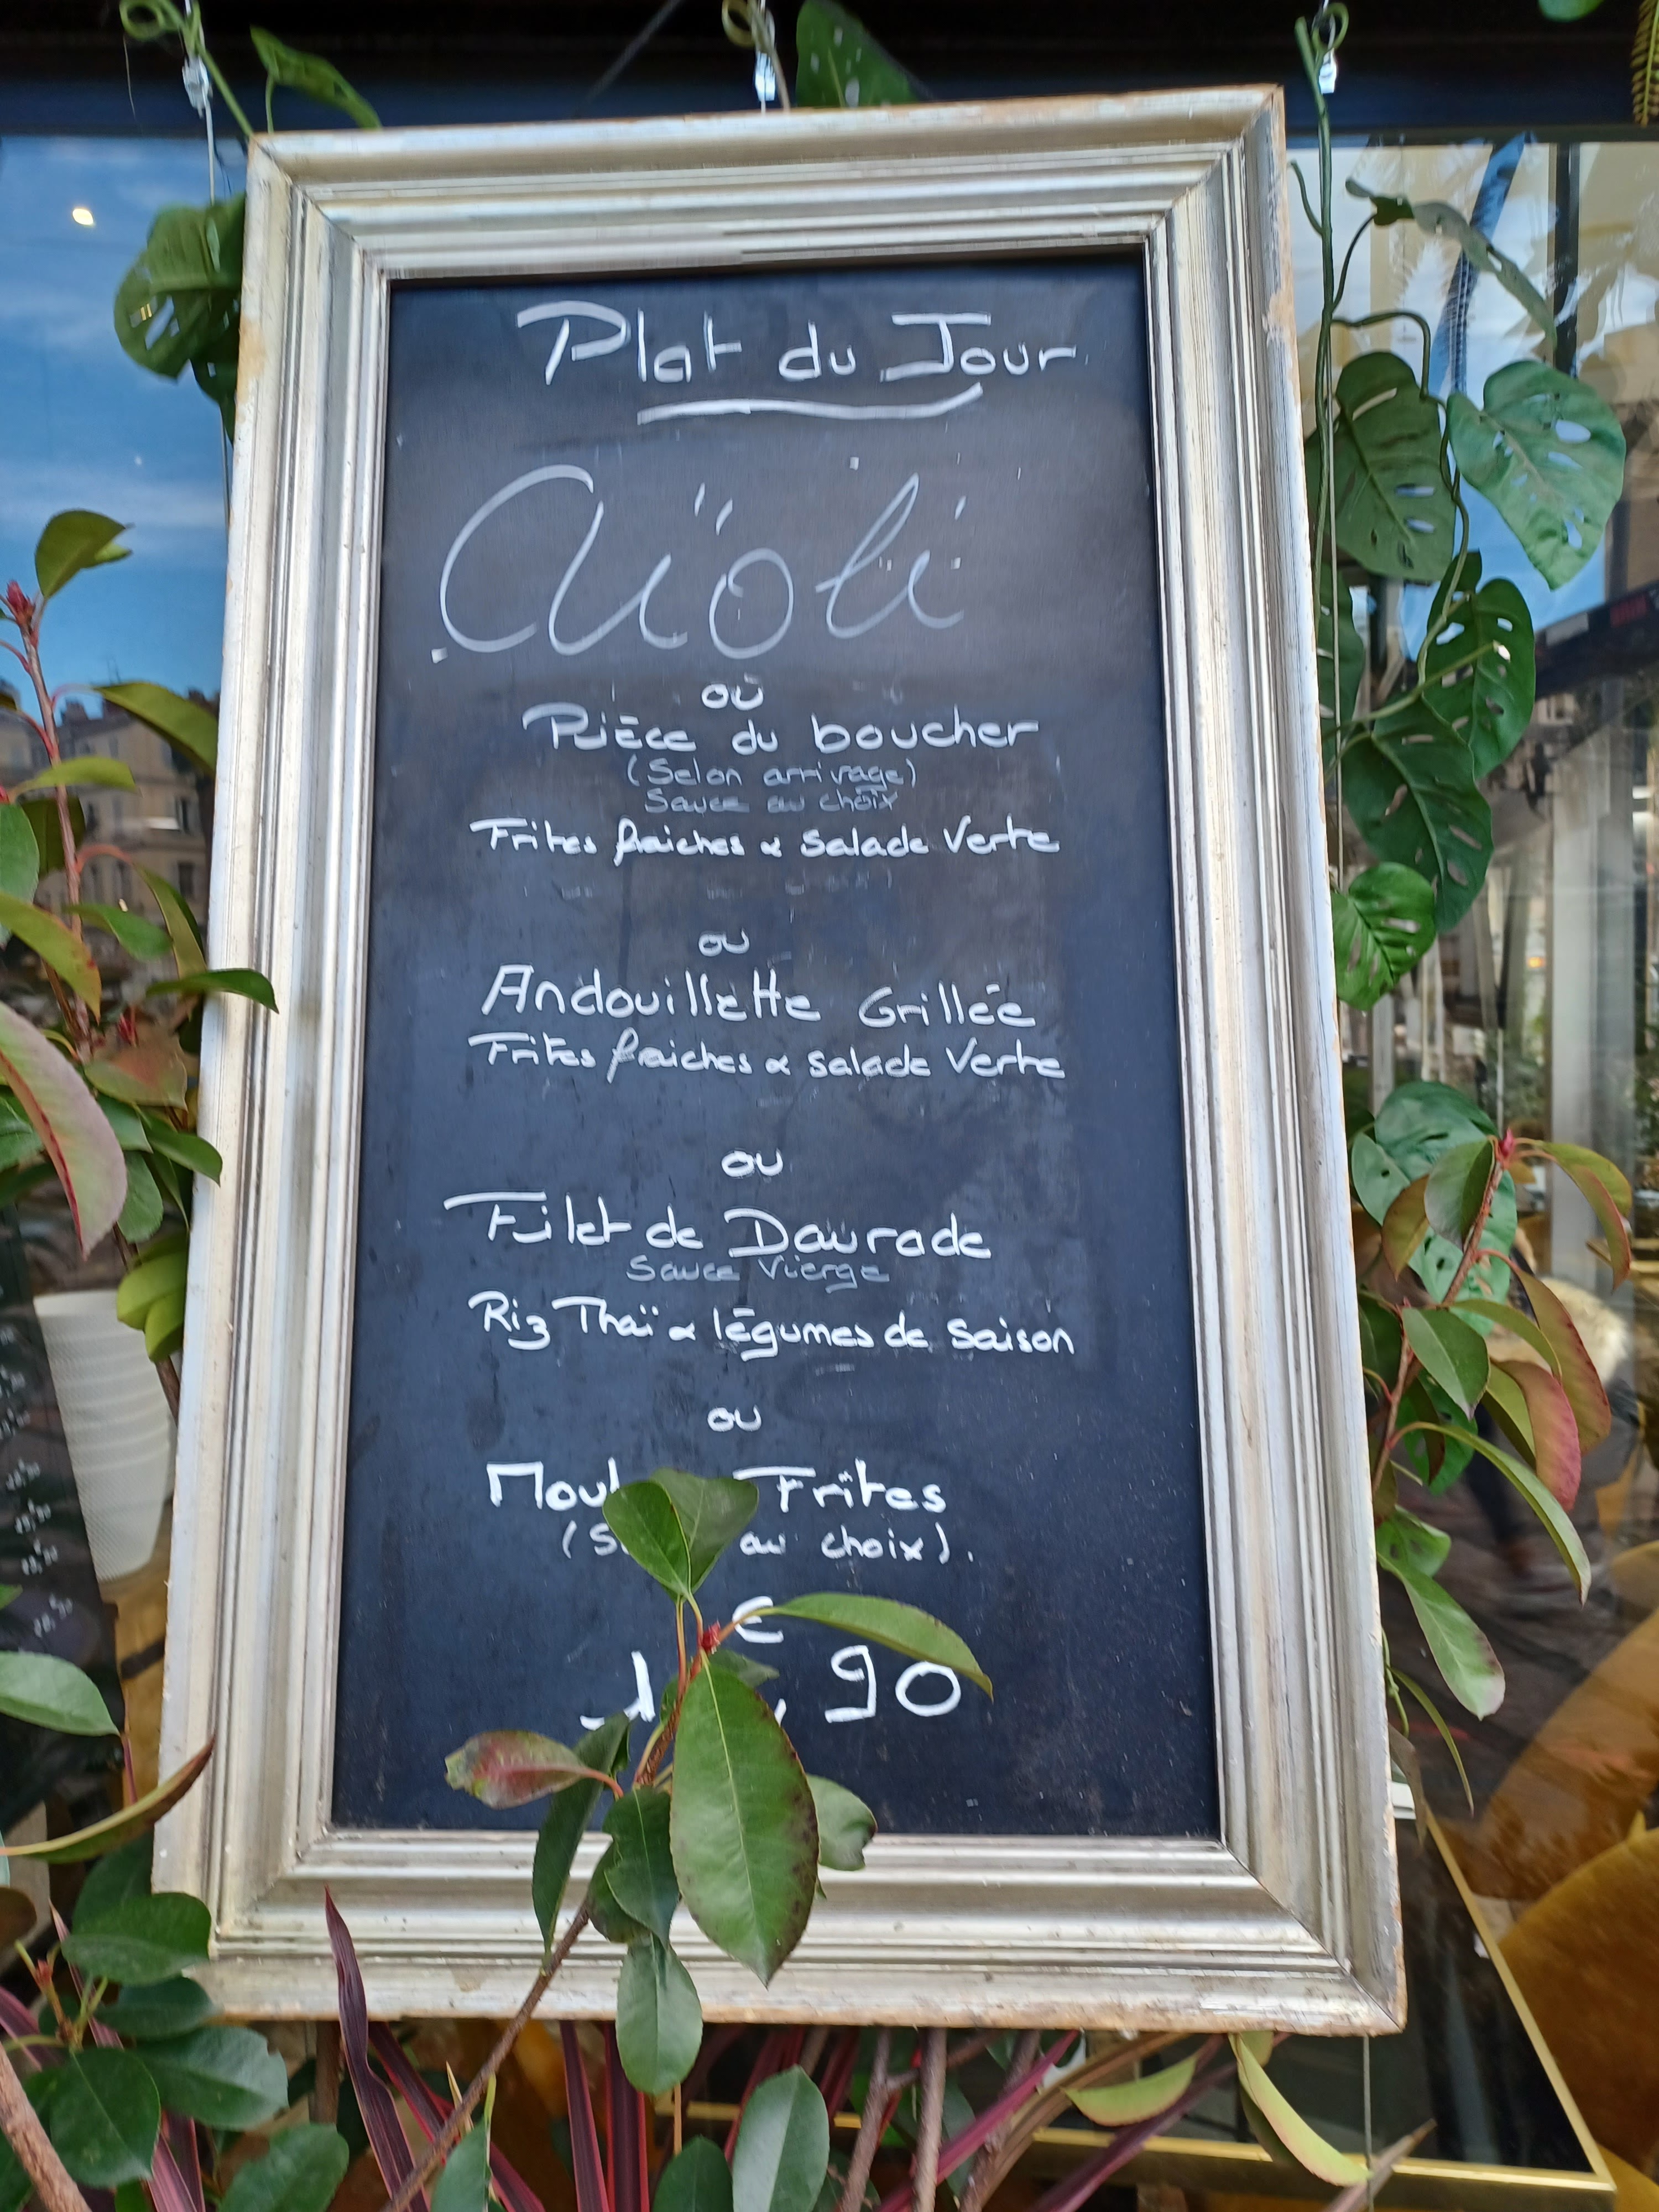 Plat du Jour
Aïoli
ou
Pièce du boucher
(Selon arrivage)
Sauce au choix
Frites fraiches & Salade Verte
ou
Andouillette Grillée
Frites fraiches & Salade Verte
ou
Filet de Daurade
Sauce Vierge
Riz Thaï & légumes de Saison
ou
Frites
au choix).
€
,90